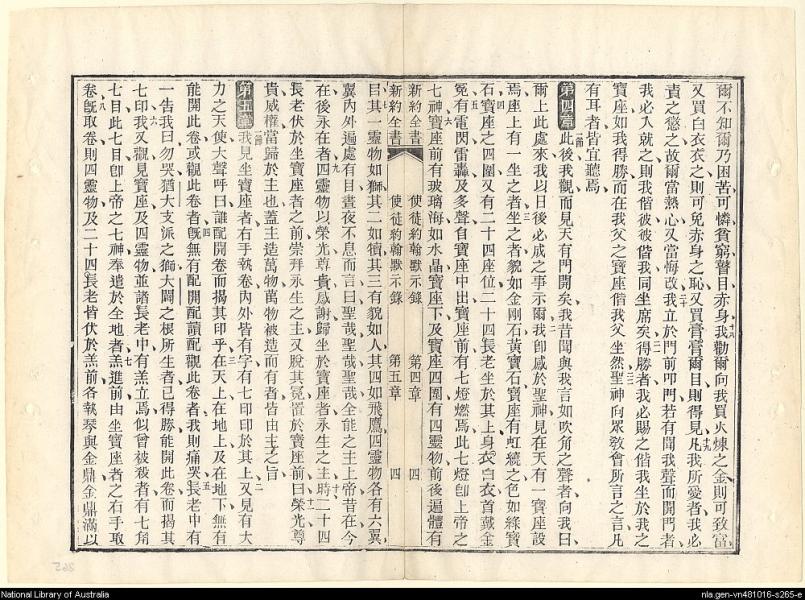 爾不知爾乃困苦可憐貧窮瞽目赤身我勸爾向我買火煉之金則可致富
又買白衣衣之則可免赤身之恥又買膏膏爾目則得見凡我所愛者我必
責之懲之故爾當熱心又當悔改我立於門前叩門若有聞我聲而開門者
我必入就之則我偕彼彼偕我同坐席矣得勝者我必賜之偕我坐於我之
寶座如我得勝而在我父之寶座偕我父坐然聖神向眾教會所言之言凡
有耳者皆宜聽焉
第四章 一節 此後我觀而見天有門開矣我昔聞與我言如吹角之聲者向我曰
爾上此處來我以日後必成之事示爾我卽感於聖神見在天有一寶座設
焉座上有一坐之者坐之者貌如金剛石黃寶石寶座有虹繞之色如綠寶
石寶座之四圍又有二十四座位二十四長老坐於其上身衣白衣首戴金
冕有電閃雷轟及多聲自寶座中出寶座前有七燈燃焉此七燈卽上帝之
七神寶座前有玻璃海如水晶寶座下及寶座四圍有四靈物前後遍體有
新約全書 使徒約翰默示錄 第四章 四
新約全書 使徒約翰默示錄 第五章 四
目其一靈物如獅其二如犢其三有貌如人其四如飛鷹四靈物各有六翼
翼內外遍處有目晝夜不息而言曰聖哉聖哉聖哉全能之主上帝昔在今
在後永在者四靈物以榮光尊貴感謝歸坐於寶座者永生之主時二十四
長老伏於坐寶座者之前崇拜永生之主又脫其冕置於寶座前曰榮光尊
貴威權當歸於主也蓋主造萬物萬物被造而有者皆由主之旨
第五章 一節 我見坐寶座者右手執卷內外皆有字有七印印於其上又見有大
力之天使大聲呼曰誰配開卷而揭其印乎在天上在地上及在地下無有
能開此卷或觀此卷者我旣無有配開配讀配觀此卷者我則痛哭長老中有
一告我曰勿哭猶大支派之獅大闢之根所生者已得勝能開此卷而揭其
七印我又觀見寶座及四靈物並諸長老中有羔立焉似曾被殺者有七角
七目此七目卽上帝之七神奉遣於全地者羔進前由坐寶座者之右手取
卷旣取卷則四靈物及二十四長老皆伏於羔前各執琴與金鼎金鼎滿以
National Library of Australia
nla.gen-vn481016-s265-e